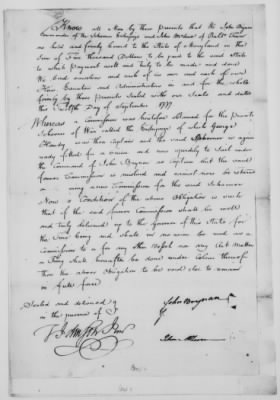 Know all Men by these Presents that We John Brynan
Commander of the Schooner Enterprize and John McClure of Balt. Town
as held and firmly bound to the State of Maryland in the
Sum of Five thousand Dollars to be paid to the said State
to which payment well and truly to be made and done
We bind ourselves and each of us our and each of our
Heirs Executors and Administrators in and for the whole
firmly by these Presents Sealed with our Seals and dated
this Day of September 1777
Whereas a Commission was heretofore Issued for the private
Schooner of War called the Enterprize of which George
was then Captain and the said Schooner is again
ready fitted for a cruise and now speedily to Sail under
the Command of John Brynan as Captain But the said
former Commission is mislaid and cannot now be returned
a new Commission for the said Schooner
Now a Condition of the above Obligation is such
that if the said former Commission shall be
and truly delivered up to the Governor of this State for
the time being and shall in no case be used as a
Commission to or for any other Vessel nor any
or Thing shall hereafter be done under Colour thereof
then the above Obligation to be void else to remain
in full force
Sealed and delivered
in the presence of
John Brynan